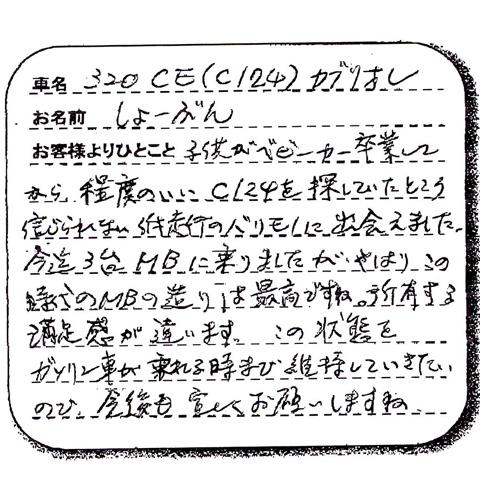 車名 320 CE (C124) カブリオレ
お名前 しょーぶん
お客様よりひとこと 子供がベビーカー卒業して
から、程度のいい C124を探していたところ
信じられない低走行のバリモノに出会えました。
今迄3台MBに乗りましたがやはりこの
時代のMBの造りは最高ですね。所有する
満足感が違います。この状態を
ガソリン車が乗れる時まで維持していきたい
ので、今後も宜しくお願いしますね